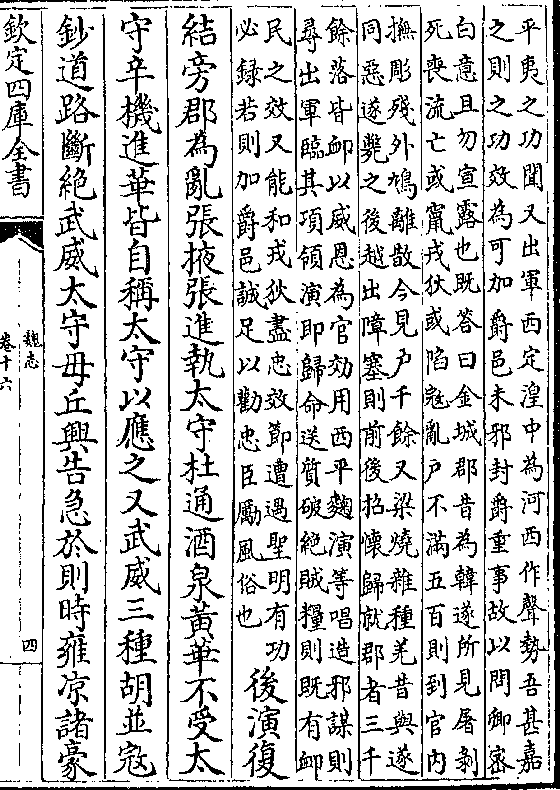 平夷之功聞又出軍西定湟中為河西作聲勢吾甚嘉
之則之功效為可加爵邑未邪封爵重事故以問卿密
白意且勿宣露也既答曰金城郡昔為韓遂所見屠剥
死喪流亡或竄戎狄或陷寇亂户不滿五百則到官内
撫彫殘外鳩離散今見户千餘又梁燒雜種羌昔與遂
同惡遂斃之後越出障塞則前後招懷歸就郡者三千
餘落皆卹以威恩為官効用西平麴演等唱造邪謀則
尋出軍臨其項領演即歸命送質破絶賊糧則既有卹
民之效又能和戎狄盡忠效節遭遇聖明有功
必録若則加爵邑誠足以勸忠臣勵風俗也
後演復
結旁郡為亂張掖張進執太守杜通酒泉黃華不受太
守辛機進華皆自稱太守以應之又武威三種胡並寇
鈔道路斷絶武威太守毋丘興告急於則時雍凉諸豪
欽定四庫全書
魏志
卷十六
四